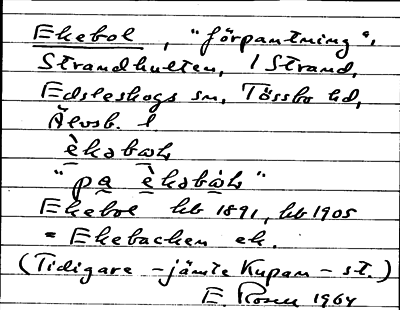 Ekebol, "förpantning",
Strandhulten, 1 Strand,
Edsleskogs sn, Tössbo hd,
Älvsb. l
èkəbωḷ
"pa èkəbωḷ"
Ekebol hb 1891, hb 1905
= Ekebacken ek.
(Tidigare - jämte Kupan - st.)
E. Rosen 1964